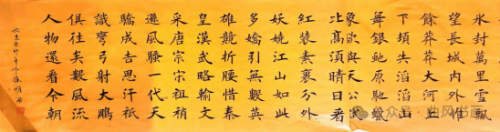 冰封萬里雪飄
望長城內外惟
餘莽莽大河上
下頓失滔滔山
舞銀蛇原馳蠟
象欲與天公試
比高須晴日看
紅裝素裹分外
妖嬈江山如此
多嬌引無數英
雄競折腰惜秦
皇漢武略輸文
采唐宗宋祖稍
遜風騷一代天
驕成吉思汗祇
識彎弓射大鵰
俱往矣數風流
人物還看今朝